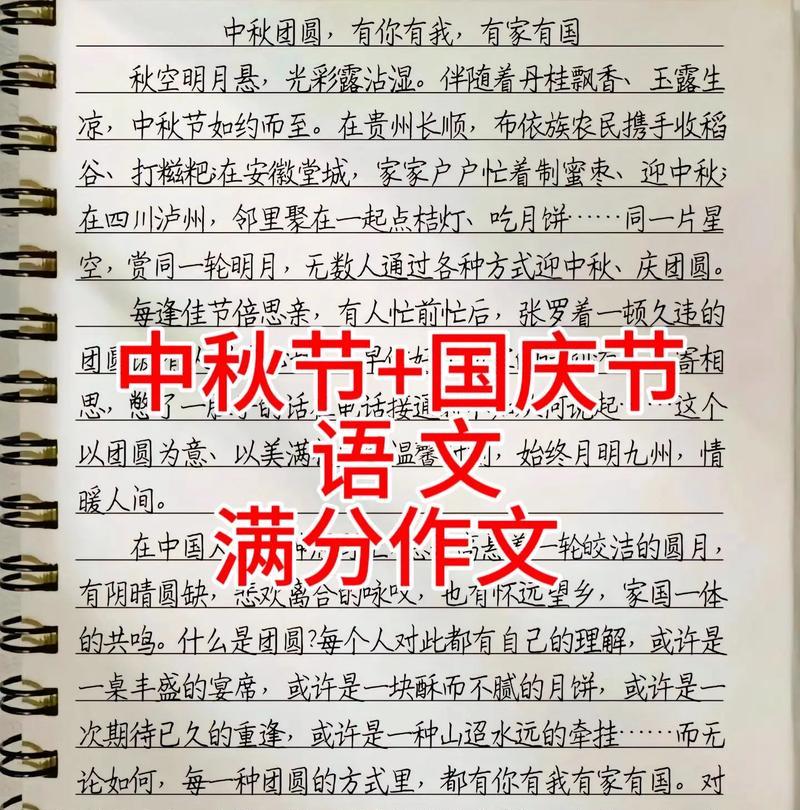 中秋团圆，有你有我，有家有国
秋空明月悬，光彩露沾湿。伴随着丹桂飘香、玉露生
凉，中秋节如约而至。在贵州长顺，布依族农民携手收稻
谷、打糍粑;在安徽堂城，家家户户忙着制蜜枣、迎中秋;
在四川泸州，邻里聚在一起点桔灯、吃月饼……同一片星
空，赏同一轮明月，无数人通过各种方式迎中秋、庆团圆。
每逢佳节倍思亲，有人忙前忙后，张罗着一顿久违的
团圆
寄相
中秋节+国庆节
思，憋了一
的话
电话接通
说起……这个
以团圆为意、以美满
温馨
，始终月明九州，情
语文
暖人间。
满分作文
在中国人
高悬着一轮皎洁的圆月，
有阴晴圆缺，悲欢离合的咏叹，也有怀远望乡，家国一体
的共鸣。什么是团圆?每个人对此都有自己的理解，或许是
一桌丰盛的宴席，或许是一块酥而不腻的月饼，或许是一
次期待已久的重逢，或许是一种山迢水远的牵挂……而无
论如何，每一种团圆的方式里，都有你有我有家有国。对